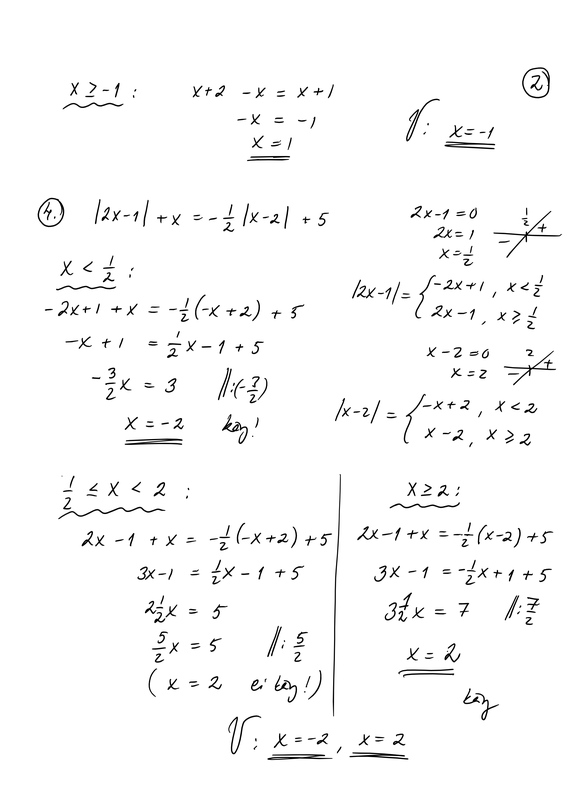 ②
x ≥ -1 :
x+2 -x = x+1
-x = -1
x = 1
V: x = -1
④. |2x-1| + x = -1/2 |x-2| + 5
2x-1 = 0
2x = 1
x = 1/2
1/2
- +
x < 1/2 :
-2x+1 + x = -1/2(-x+2) + 5
-x + 1 = 1/2x - 1 + 5
-3/2x = 3 ||:(-3/2)
x = -2 käy!
|2x-1| = { -2x+1 , x < 1/2
2x-1 , x ≥ 1/2
x-2 = 0
x = 2
2
- +
|x-2| = { -x+2 , x < 2
x-2 , x ≥ 2
1/2 ≤ x < 2 :
2x-1 + x = -1/2(-x+2) + 5
3x-1 = 1/2x - 1 + 5
2 1/2x = 5
5/2x = 5 ||: 5/2
( x = 2 ei käy! )
x ≥ 2 :
2x-1+x = -1/2(x-2) + 5
3x - 1 = -1/2x + 1 + 5
3 1/2x = 7 ||: 7/2
x = 2
käy
V: x = -2 , x = 2